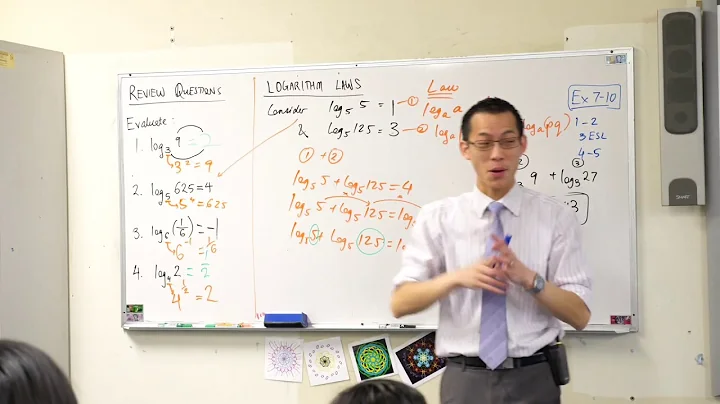 REVIEW QUESTIONS
Evaluate:
1. log₃ 9 = 2
3² = 9
2. log₅ 625 = 4
5⁴ = 625
3. log₆ (1/6) = -1
6⁻¹ = 1/6
4. log₄ 2 = 1/2
4^½ = 2
LOGARITHM LAWS
Consider log₅ 5 = 1 ①
& log₅ 125 = 3 ②
① + ②
log₅ 5 + log₅ 125 = 4
log₅ 5 + log₅ 125 = log₅
log₅ 5 + log₅ 125 =
Law
logₐ a
logₐ
logₐ(pq)
Ex 7-10
1-2
3 ESL
4-5
②
③
9 + log₃ 27
3